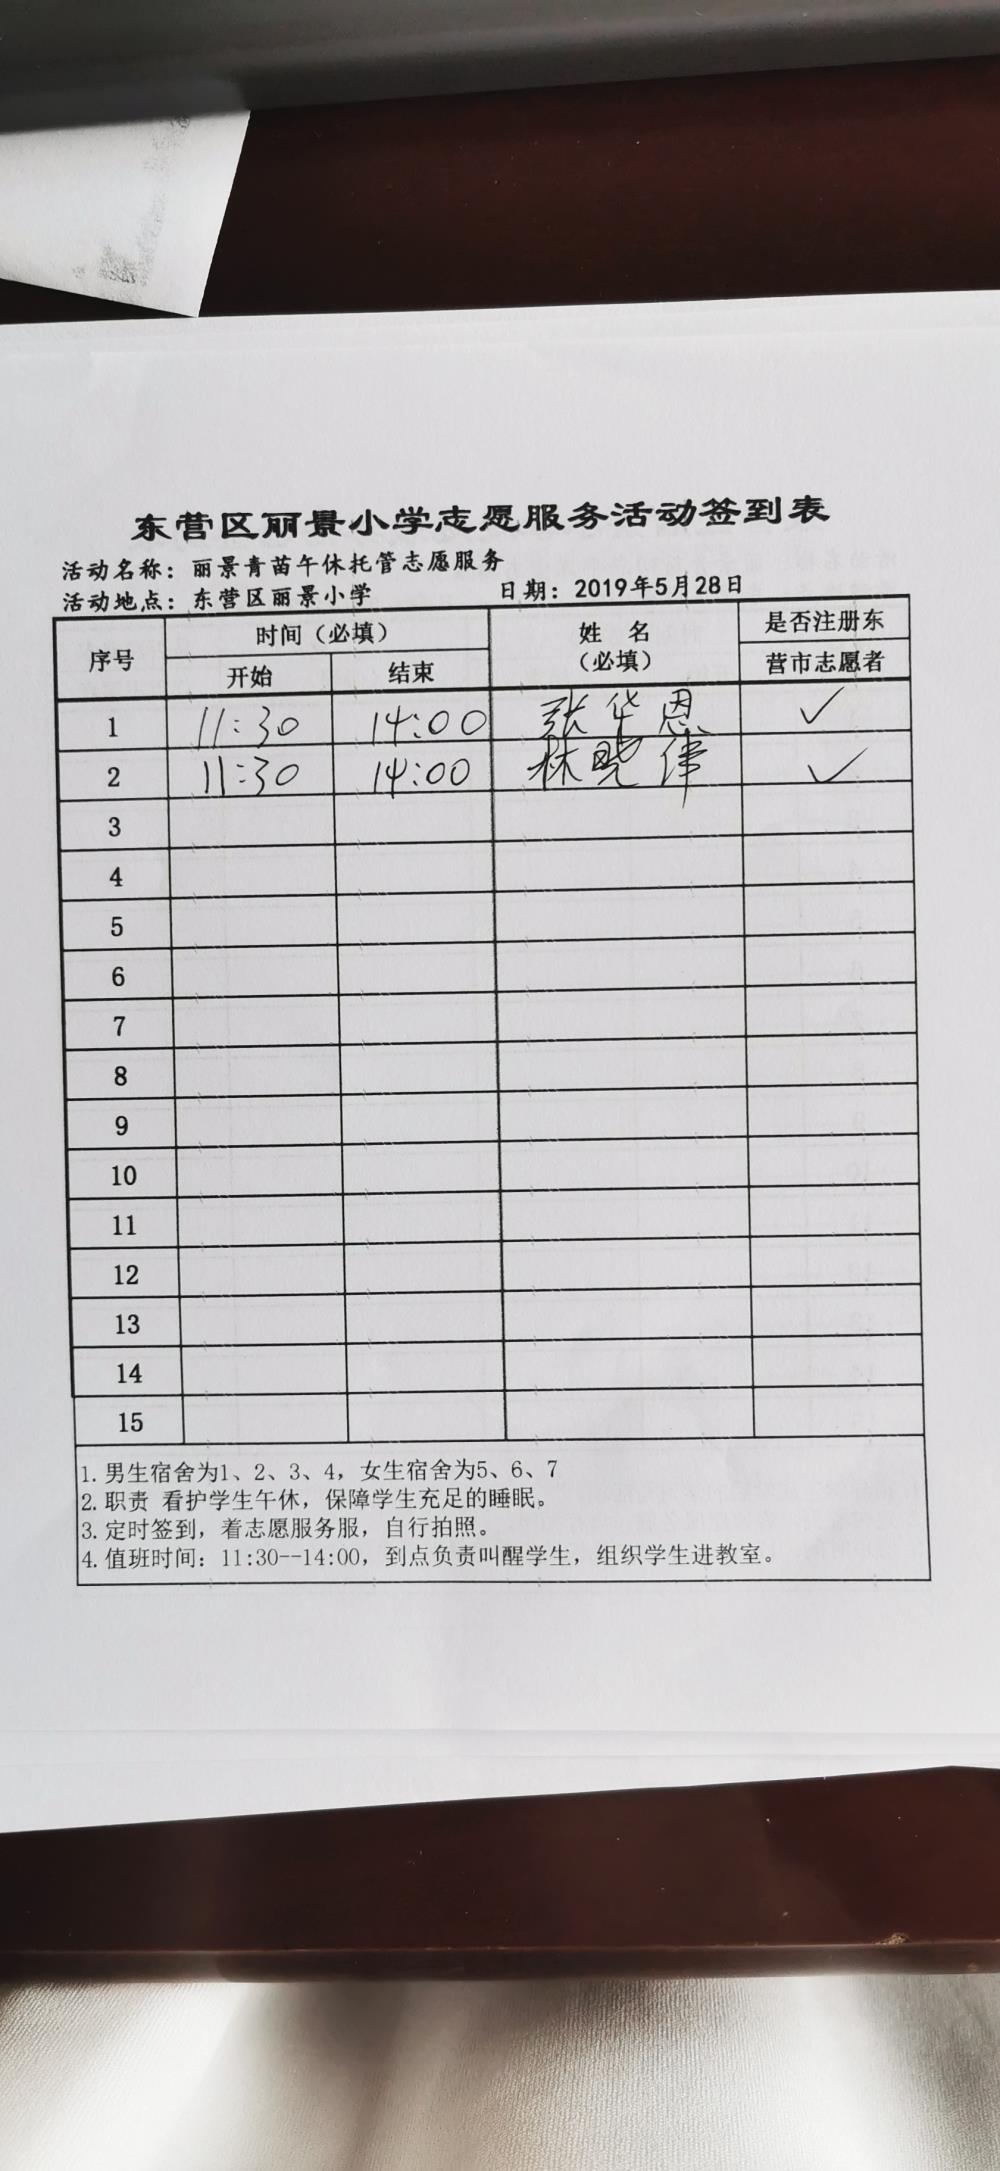 东营区丽景小学志愿服务活动签到表
活动名称：丽景青苗午休托管志愿服务
活动地点：东营区丽景小学 日期：2019年5月28日
序号 时间（必填） 姓 名（必填） 是否注册东营市志愿者
开始 结束
1 11:30 14:00 张华恩 ✓
2 11:30 14:00 林晓伟 ✓
3
4
5
6
7
8
9
10
11
12
13
14
15
1. 男生宿舍为1、2、3、4，女生宿舍为5、6、7
2. 职责 看护学生午休，保障学生充足的睡眠。
3. 定时签到，着志愿服务服，自行拍照。
4. 值班时间：11:30--14:00，到点负责叫醒学生，组织学生进教室。